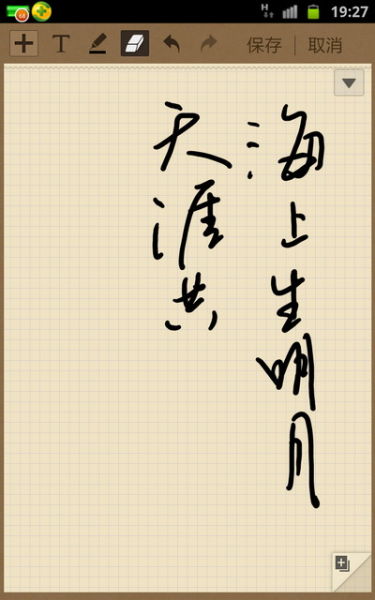 H 19:27
T 保存 取消
海上生明月
天涯共